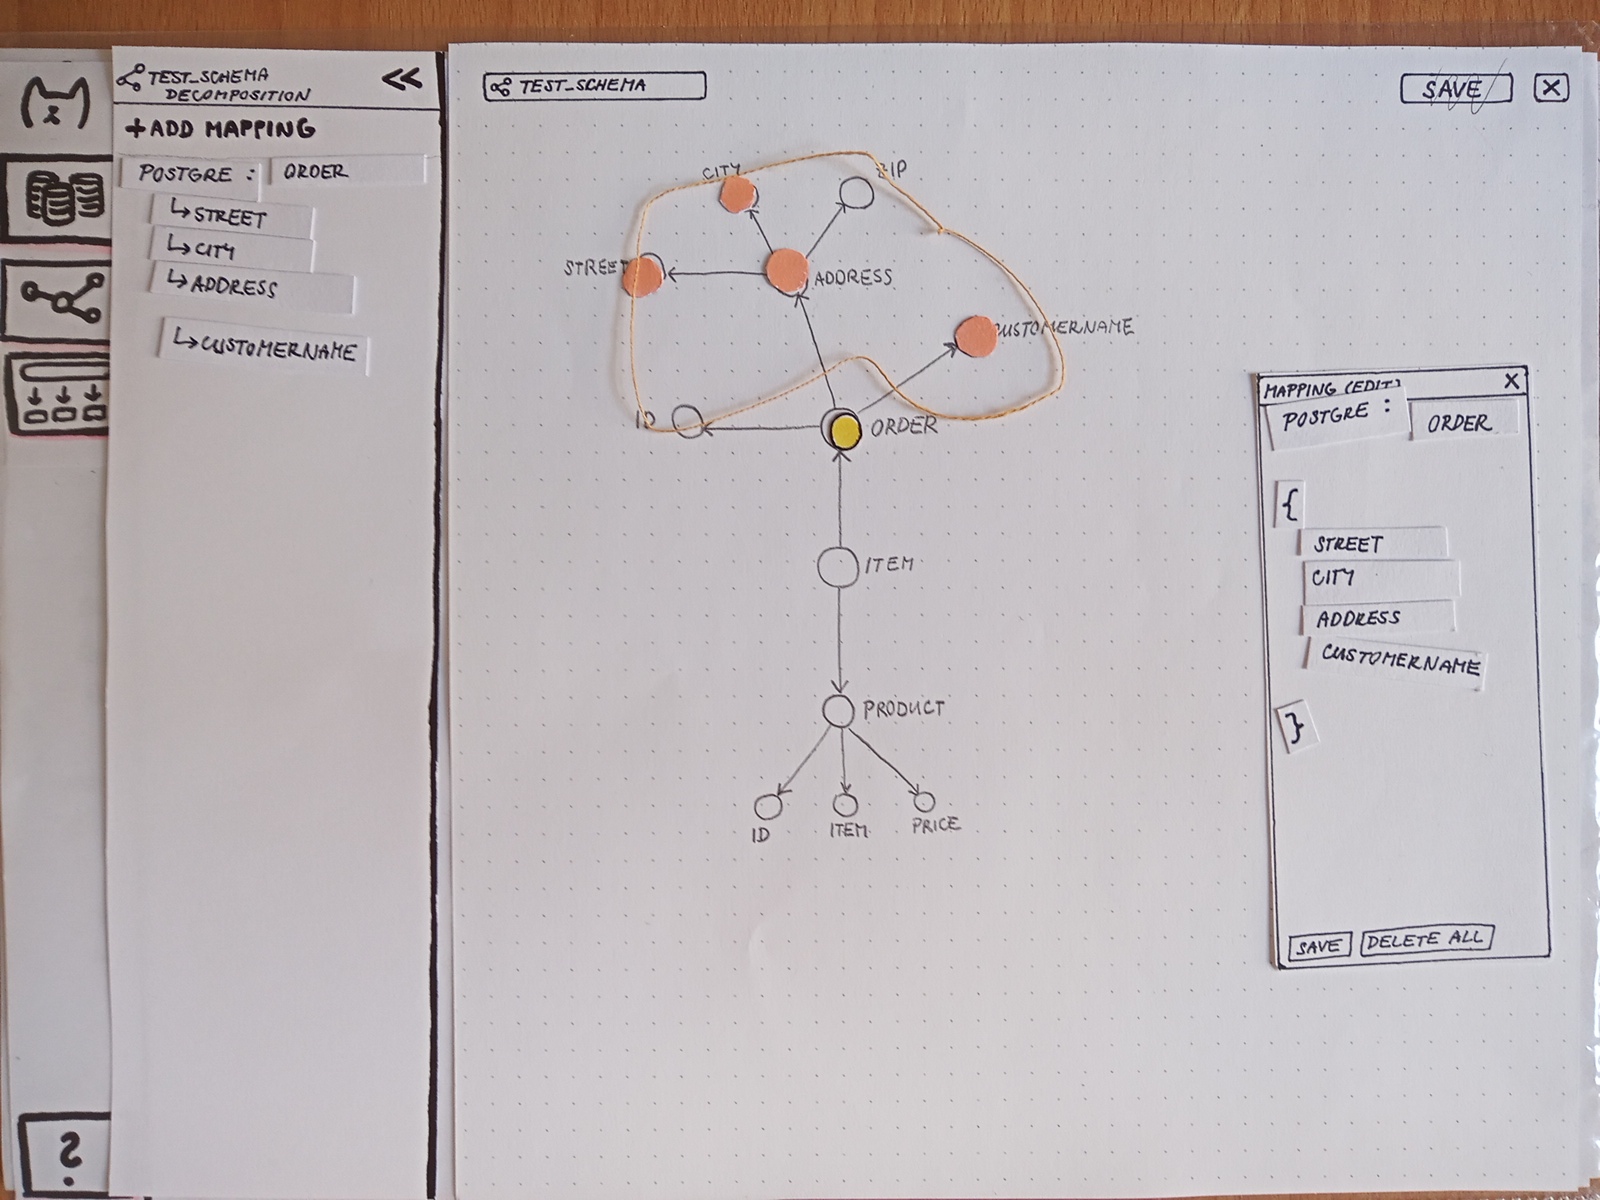 TEST_SCHEMA
DECOMPOSITION
<<
+ADD MAPPING
POSTGRE : ORDER
↳STREET
↳CITY
↳ADDRESS
↳CUSTOMERNAME
?
TEST_SCHEMA
SAVE X
CITY ZIP
STREET ADDRESS
CUSTOMERNAME
ID ORDER
ITEM
PRODUCT
ID ITEM PRICE
MAPPING (EDIT) X
POSTGRE : ORDER
{
STREET
CITY
ADDRESS
CUSTOMERNAME
}
SAVE DELETE ALL